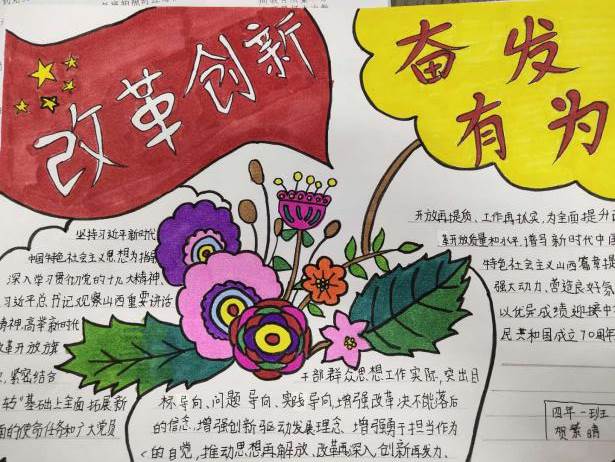 改革创新
奋发
有为
坚持习近平新时代
中国特色社会主义思想为指
深入学习贯彻党的十九大精神、
习近平总书记视察山西重要讲话
精神,高举新时代
改革开放旗
紧密结合
转"基础上全面拓展新
面的使命任务和广大党员
干部群众思想工作实际,突出目
标导向、问题导向、实践导向,增强改革决不能落后
的信念,增强创新驱动发展理念,增强勇于担当作为
的自觉,推动思想再解放、改革再深入、创新再发力、
开放再提质、工作再抓实,为全面提升
革开放质量和水平,谱写新时代中国
特色社会主义山西篇章提
强大动力、营造良好氛
以优异成绩迎接中
民共和国成立70周年
四年一班
贺紫晴